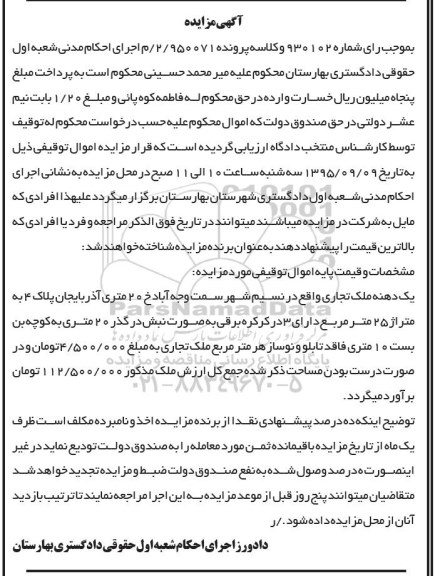 آگهی مزایده
بموجب رای شماره ۹۳۰۱۰۲ و کلاسه پرونده ۲/۹۵۰۰۷۱/م اجرای احکام مدنی شعبه اول
حقوقی دادگستری بهارستان محکوم علیه میر محمد حسینی محکوم است به پرداخت مبلغ
پنجاه میلیون ریال خسارت وارده در حق محکوم له فاطمه کوه پائی و مبلغ ۱/۲۰ بابت نیم
عشر دولتی در حق صندوق دولت که اموال محکوم علیه حسب درخواست محکوم له توقیف
توسط کارشناس منتخب دادگاه ارزیابی گردیده است که قرار مزایده اموال توقیفی ذیل
به تاریخ ۱۳۹۵/۰۹/۰۹ سه شنبه ساعت ۱۰ الی ۱۱ صبح در محل مزایده به نشانی اجرای
احکام مدنی شعبه اول دادگستری شهرستان بهارستان برگزار میگردد علیهذا افرادی که
مایل به شرکت در مزایده میباشند میتوانند در تاریخ فوق الذکر مراجعه و فرد یا افرادی که
بالاترین قیمت را پیشنهاد دهند به عنوان برنده مزایده شناخته خواهند شد:
مشخصات و قیمت پایه اموال توقیفی مورد مزایده:
یک دهنه ملک تجاری واقع در نسیم شهر سمت وجه آباد خ ۲۰ متری آذربایجان پلاک ۴ به
متراژ ۲۵ متر مربع دارای ۳ در کرکره برقی به صورت نبش در گذر ۲۰ متری به کوچه بن
بست ۱۰ متری فاقد تابلو و نوساز هر متر مربع ملک تجاری به مبلغ ۴/۵۰۰/۰۰۰ تومان و در
صورت درست بودن مساحت ذکر شده جمع کل ارزش ملک مذکور ۱۱۲/۵۰۰/۰۰۰ تومان
برآورد میگردد.
توضیح اینکه ده درصد پیشنهادی نقدا از برنده مزایده اخذ و نامبرده مکلف است ظرف
یک ماه از تاریخ مزایده باقیمانده ثمن مورد معامله را به صندوق دولت تودیع نماید در غیر
اینصورت ده درصد وصول شده به نفع صندوق دولت ضبط و مزایده تجدید خواهد شد
متقاضیان میتوانند پنج روز قبل از موعد مزایده به این اجرا مراجعه نمایند تا ترتیب بازدید
آنان از محل مزایده داده شود./ر
دادورز اجرای احکام شعبه اول حقوقی دادگستری بهارستان
ParsNamadData
پایگاه اطلاع رسانی مناقصه و مزایده
۰۲۱-۸۸۳۴۹۶۷۰-۵